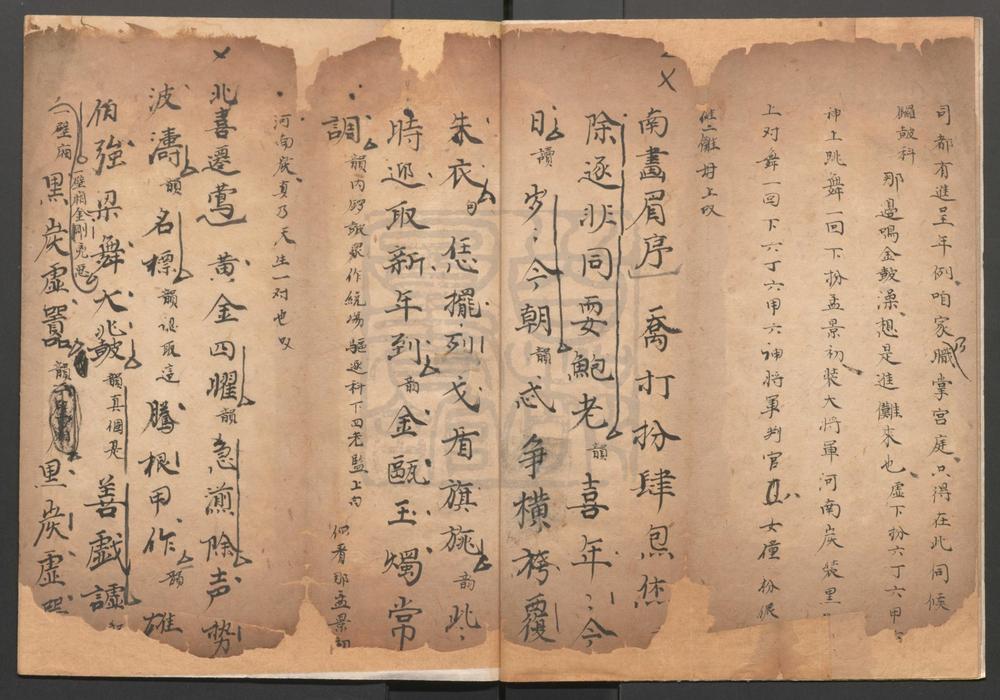 司都有進呈年例咱家職掌宮庭只得在此伺候
鑼鼓科 那邊鳴金鼓澡想是進儺來也虛下扮六丁六甲
神上跳舞一回下扮孟景初裝大將軍河南炭裝黑
上对舞一回下六丁六甲六神將軍判官 女僮扮
上又
南畫眉序 喬打扮肆
除逐悲同耍鮑老韻喜年〻今
日讀岁〻今朝韻忒争橫袴覆
朱衣句恁擺列戈盾旗旄韵此〻
時迎取新年到韵金甌玉燭常
調韻內 眾作繞場驅逐科下四老監上向 你看那孟景初
河南炭真乃天生一对也又
北喜遷鶯 黄金四耀韻急煎除声势
波濤韻名標韻認取這騰根甲作韻雄
伯強梁舞大鼗韻真個是善戲謔
一壁廂一壁廂金剛 黑炭虛囂韻黑炭虛